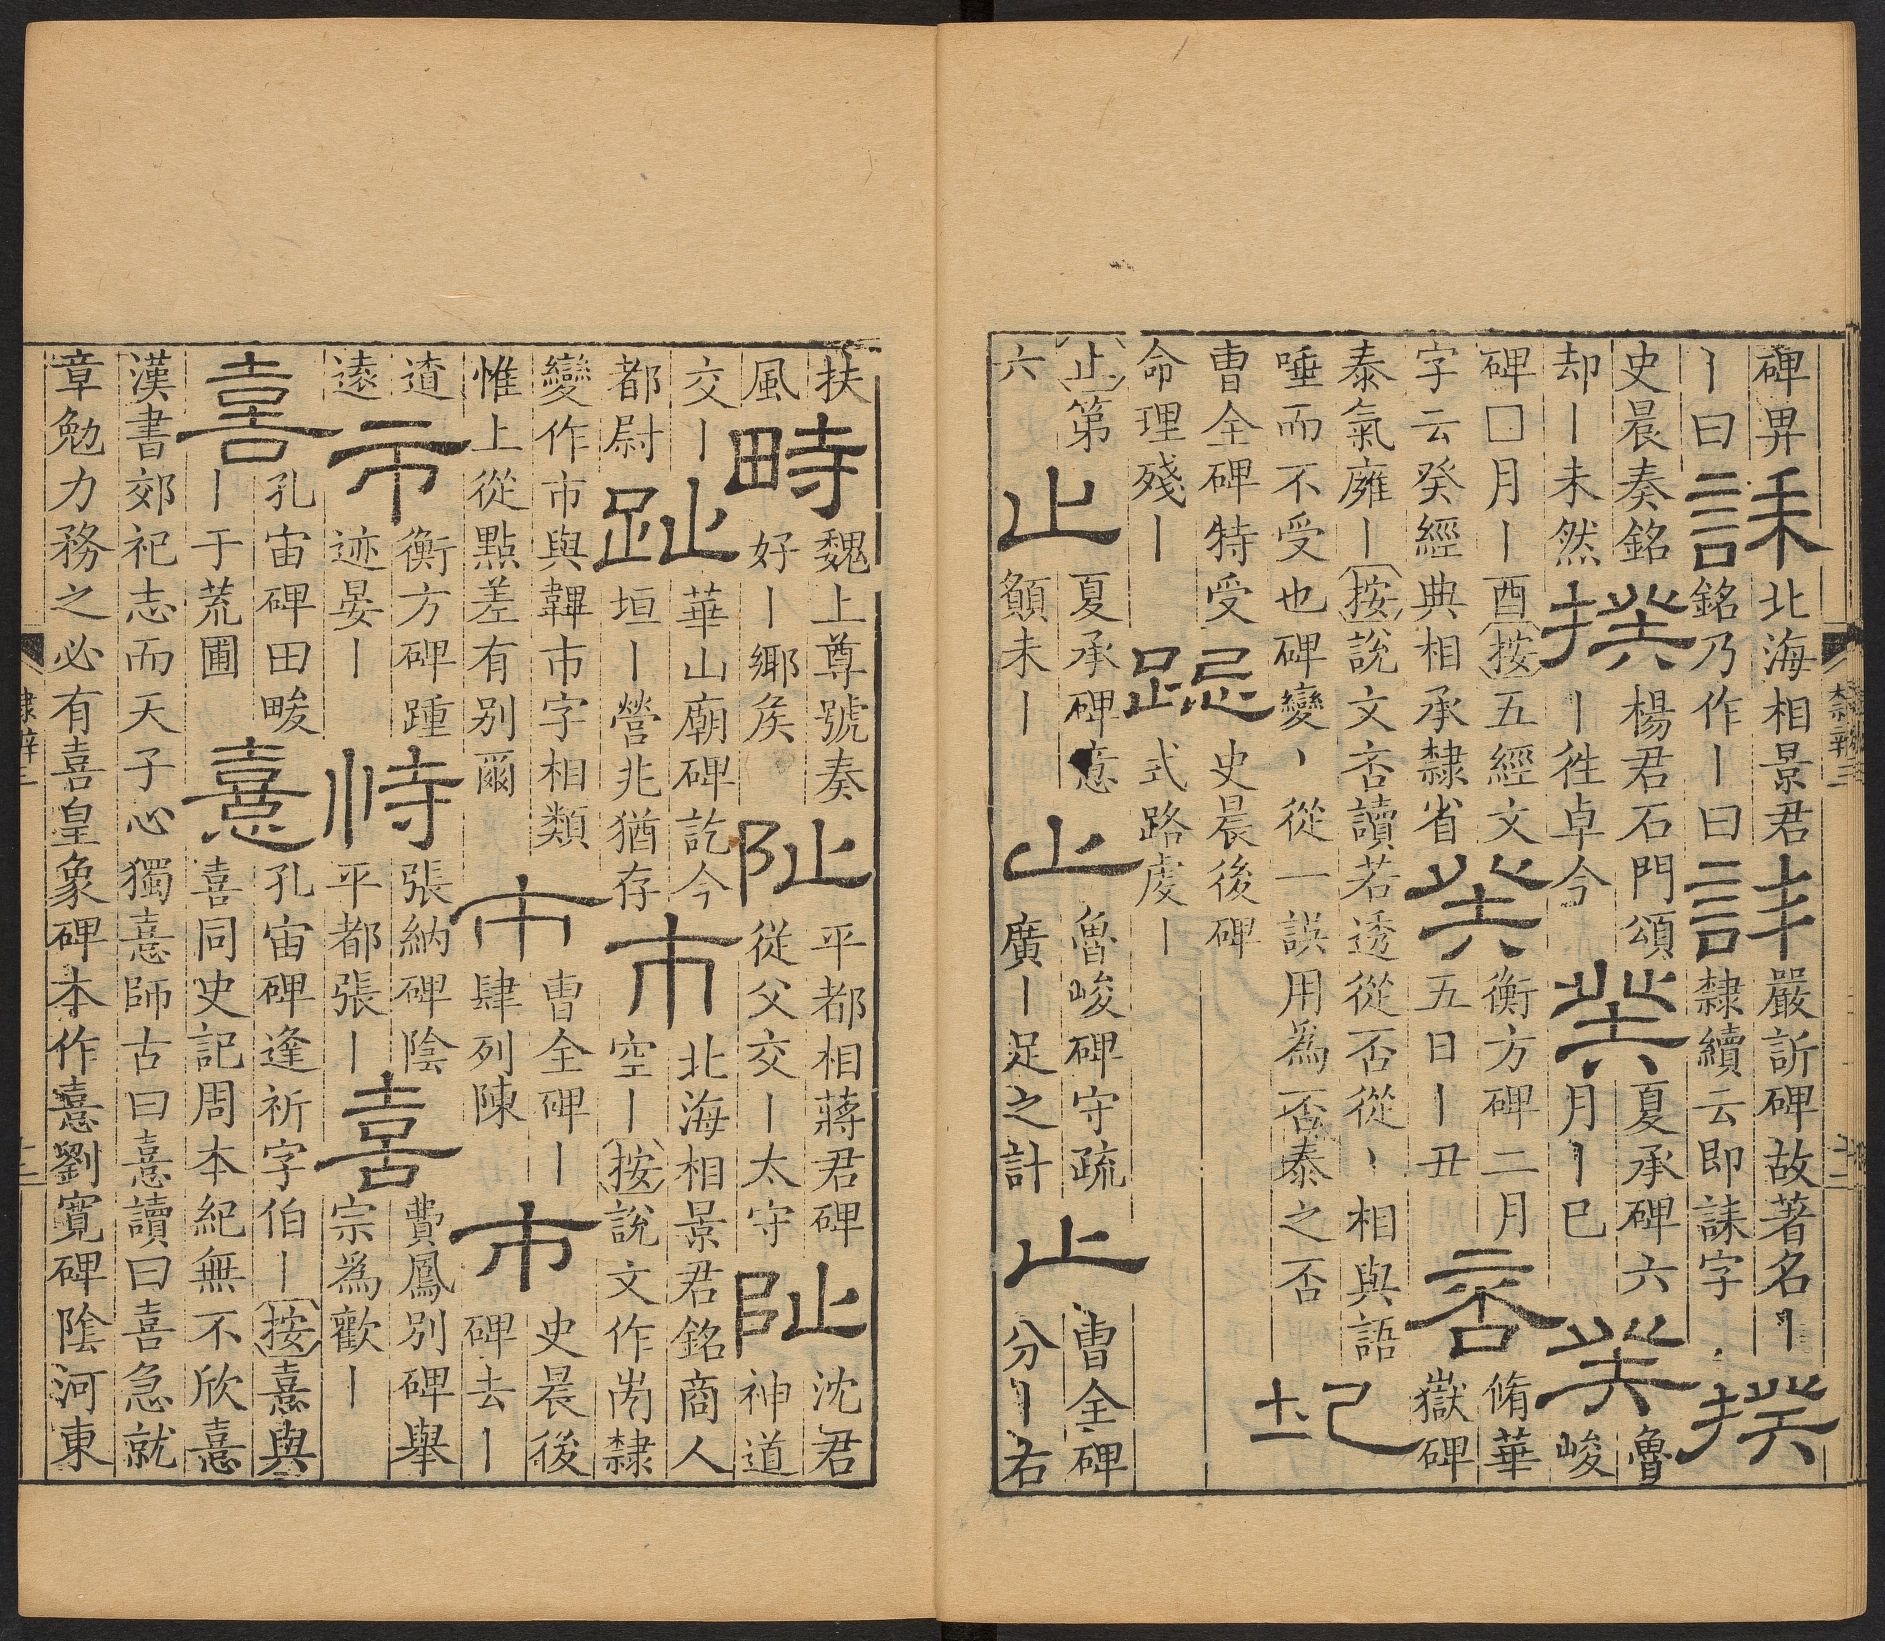 碑畀丨曰誄北海相景君銘乃作丨曰誄嚴訢碑故著名丨隸續云即誄字揆
史晨奏銘却丨未然揆楊君石門頌丨往卓今癸夏承碑六月丨巳癸魯峻
碑囗月丨酉按五經文字云癸經典相承隸省癸衡方碑二月五日丨丑否脩華嶽碑
泰氣廱丨按說文否讀若透從否從丶相與語唾而不受也碑變丶從一誤用為否泰之否圮
曹全碑特受命理殘丨跽史晨後碑式路虔丨
止第六止夏承碑意顧未丨止魯峻碑守疏廣丨足之計止曹全碑分丨右
隸辨三
十二
扶風畤魏上尊號奏好丨鄉矦阯平都相蔣君碑從父交丨太守阯沈君神道
交丨都尉趾華山廟碑訖今垣丨營兆猶存市北海相景君銘商人空丨按說文作㞢隸
變作市與韠巿字相類惟上從點差有別爾市曹全碑丨肆列陳市史晨後碑去丨
渣遠市衡方碑踵迹晏丨恃張納碑陰平都張丨喜費鳳別碑舉宗爲歡丨
喜孔宙碑田畯丨于荒圃憙孔宙碑逢祈字伯丨按憙與喜同史記周本紀無不欣憙
漢書郊祀志而天子心獨憙師古曰憙讀曰喜急就章勉力務之必有喜皇象碑本作憙劉寬碑陰河東